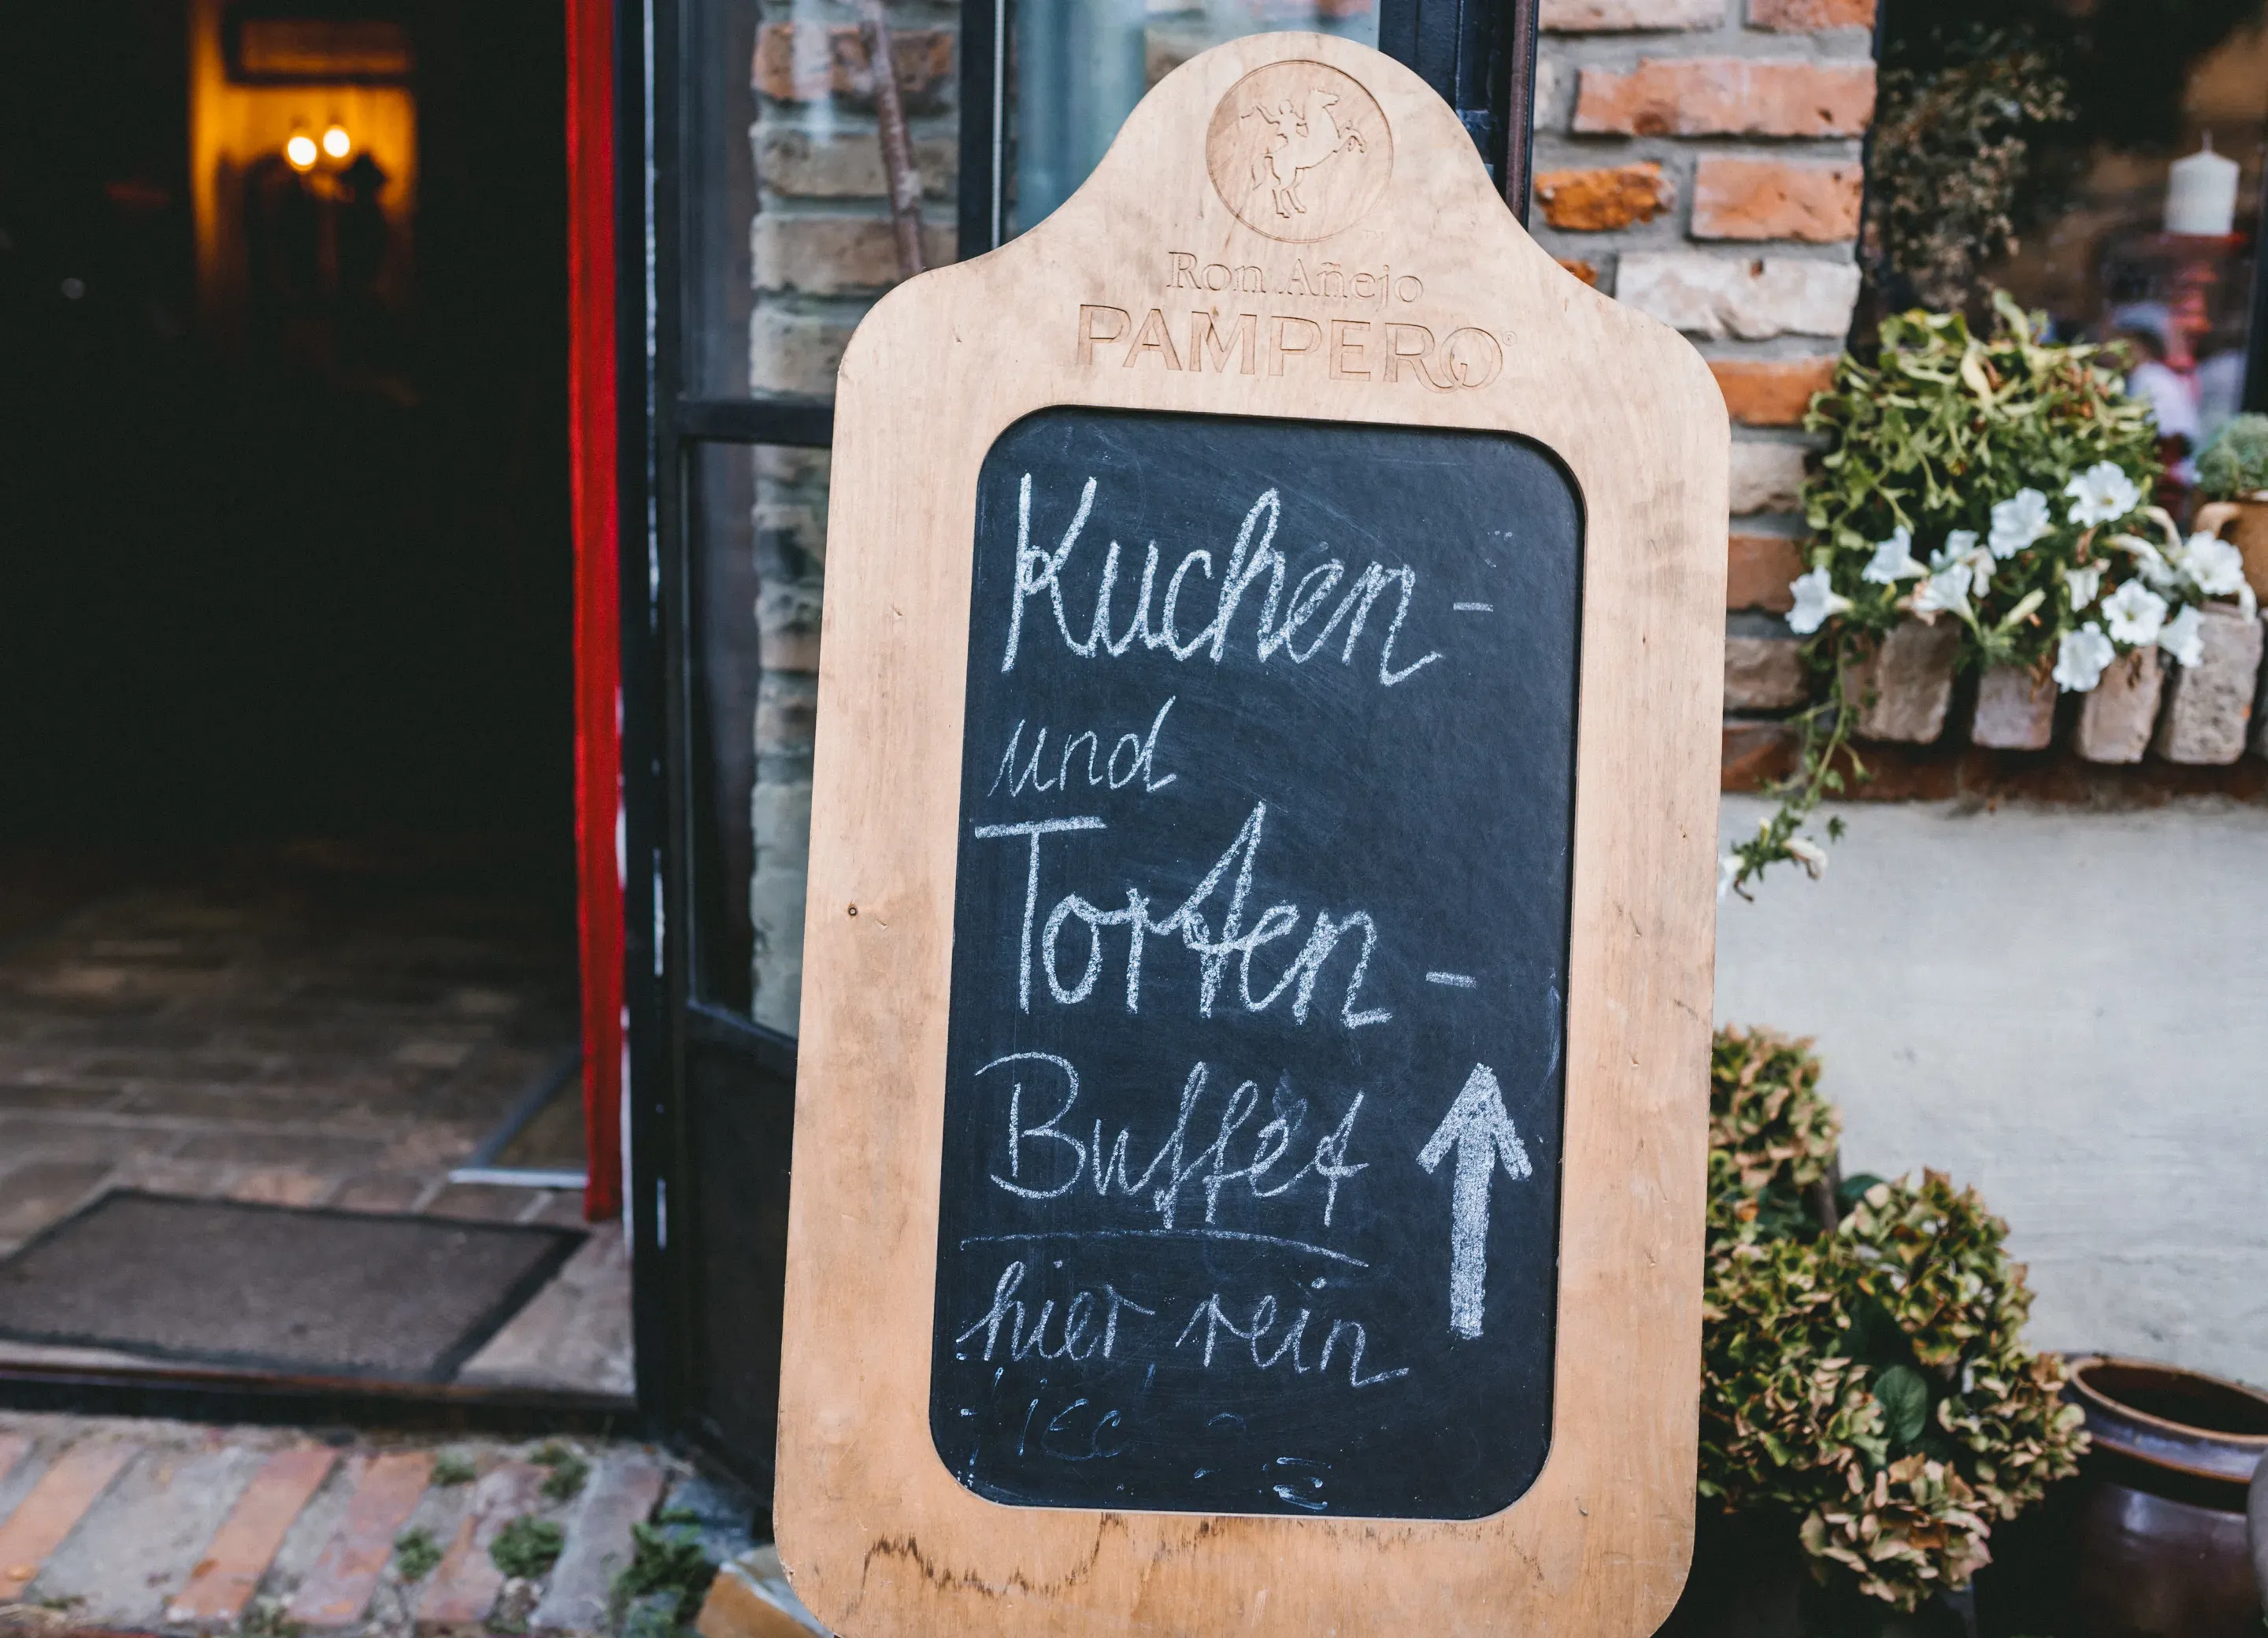 Ron Añejo
PAMPERO®
Kuchen-
und
Torten-
Buffet
hier rein